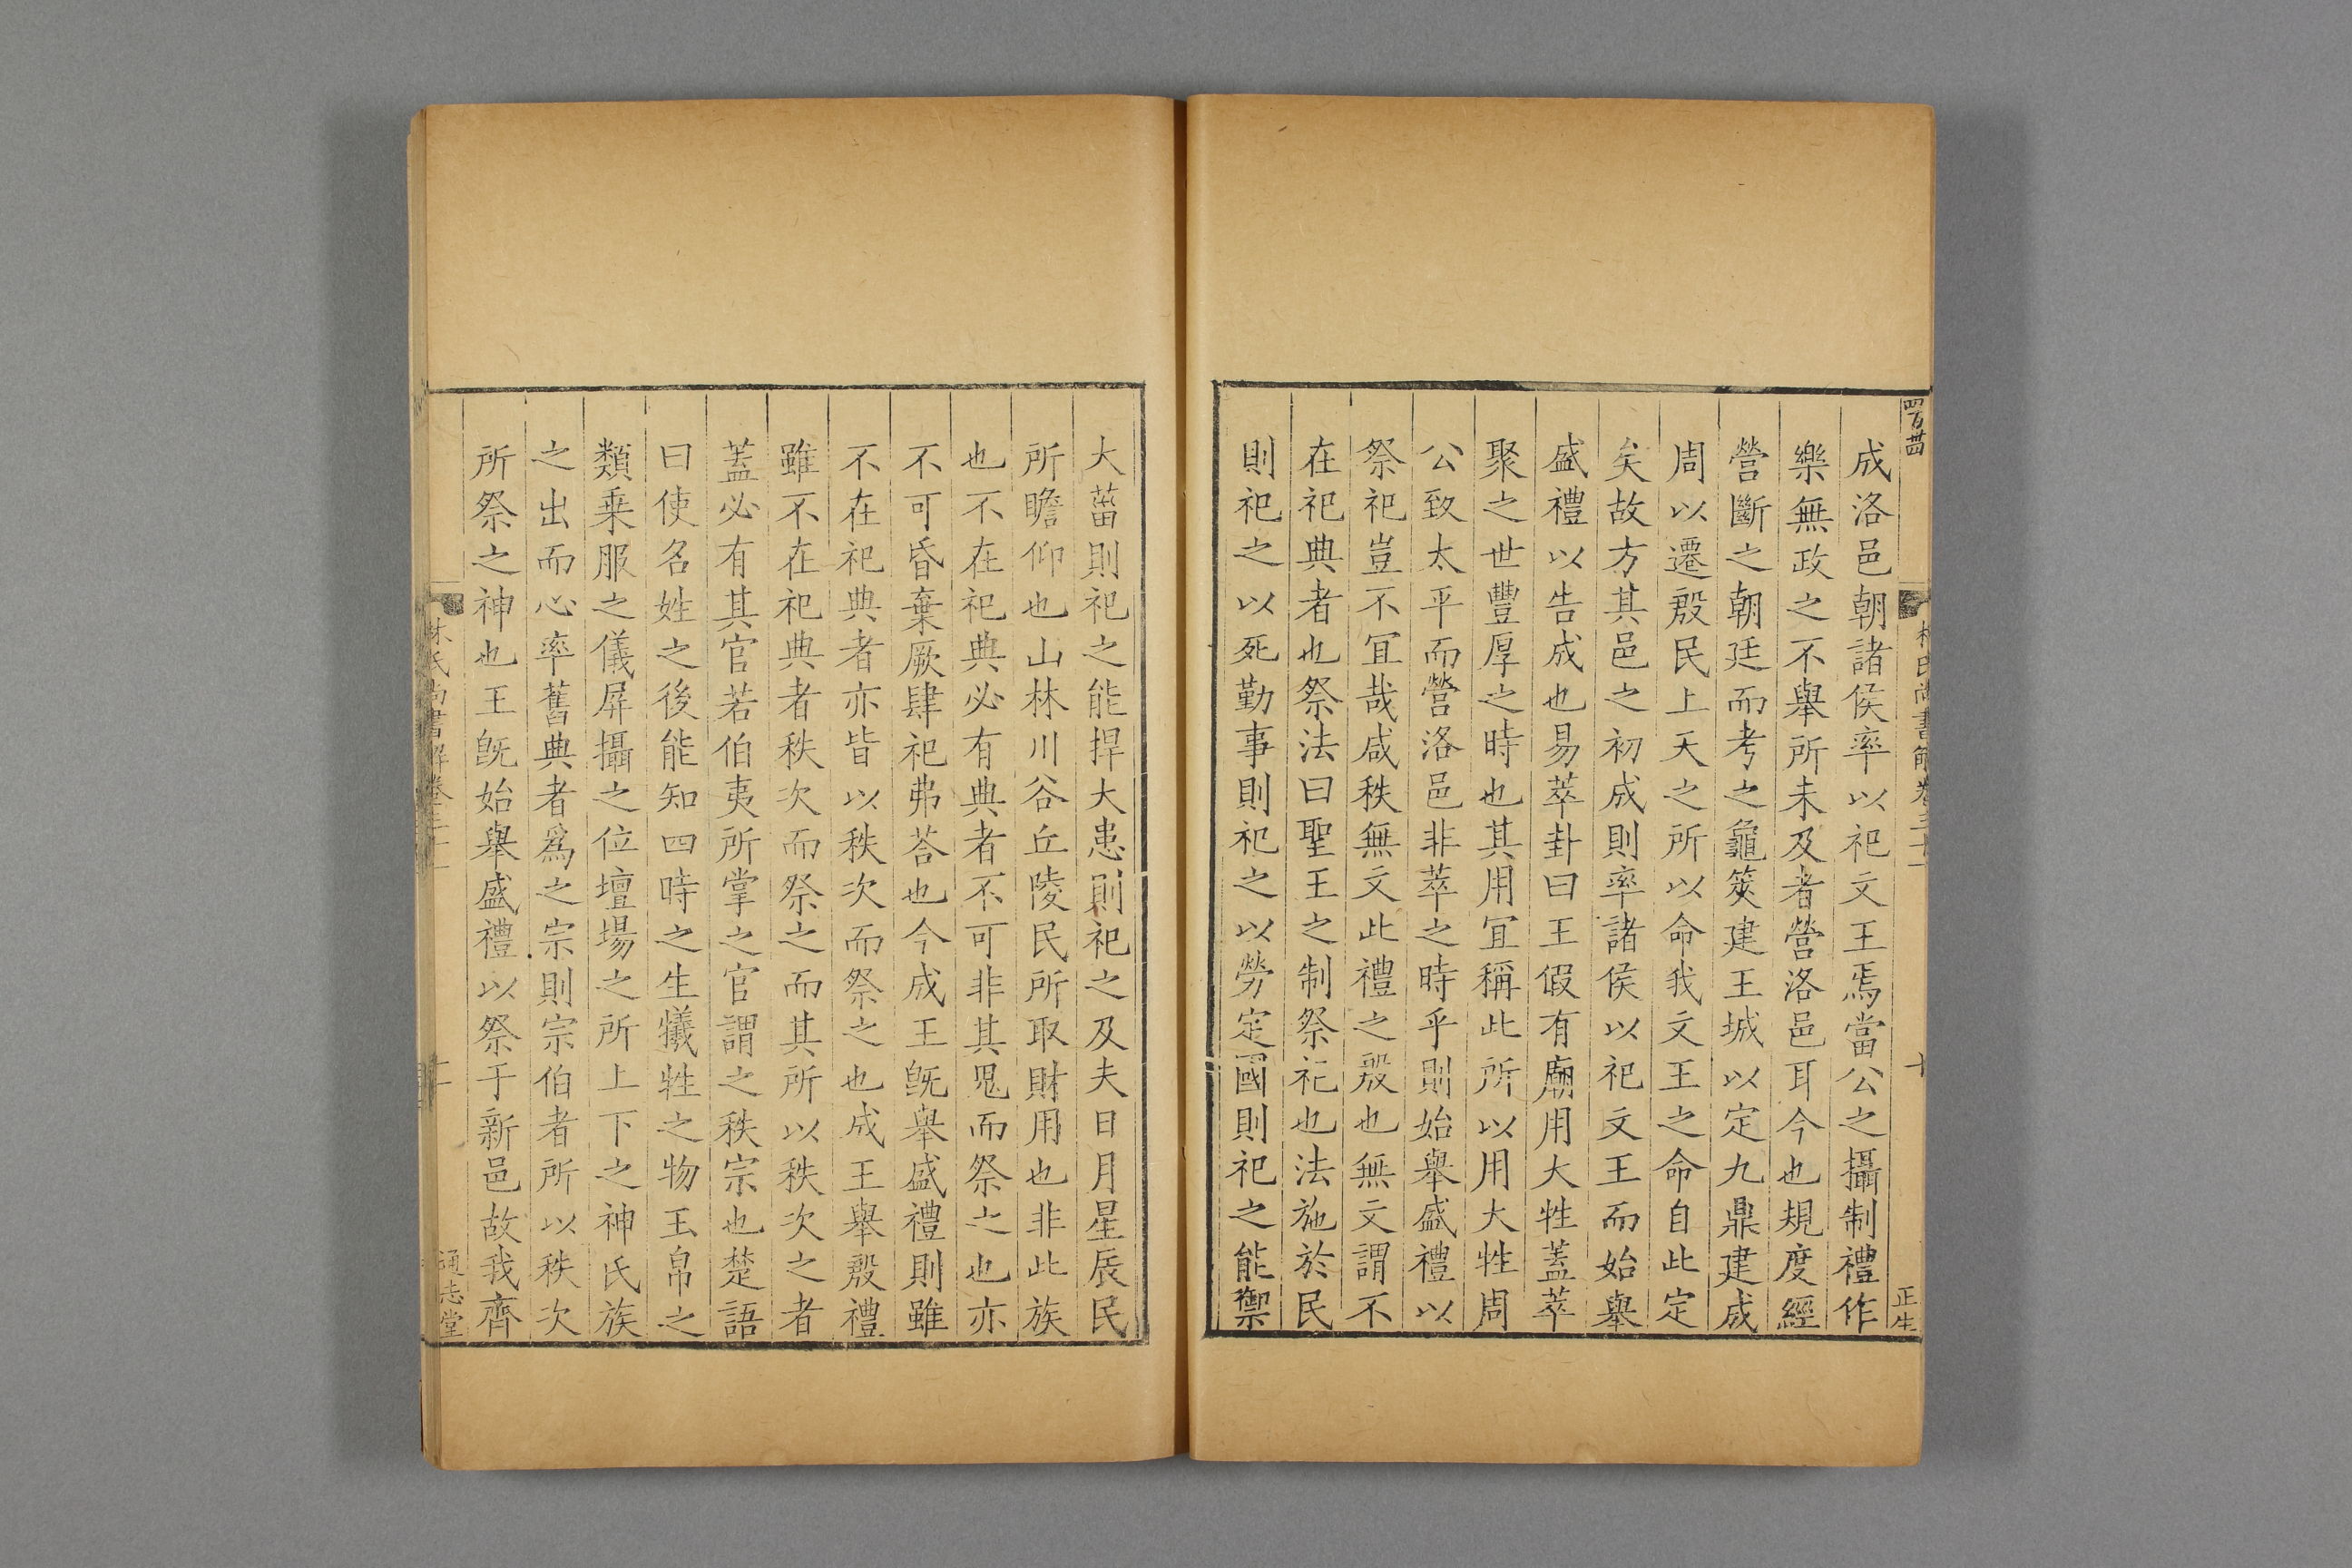 四百卌
林氏尚書解卷三十一
十
正生
成洛邑朝諸侯率以祀文王焉當公之攝制禮作
樂無政之不舉所未及者營洛邑耳今也規度經
營斷之朝廷而考之龜筴建王城以定九鼎建成
周以遷殷民上天之所以命我文王之命自此定
矣故方其邑之初成則率諸侯以祀文王而始舉
盛禮以告成也易萃卦曰王假有廟用大牲蓋萃
聚之世豐厚之時也其用冝稱此所以用大牲周
公致太平而營洛邑非萃之時乎則始舉盛禮以
祭祀豈不冝哉咸秩無文此禮之殷也無文謂不
在祀典者也祭法曰聖王之制祭祀也法施於民
則祀之以死勤事則祀之以勞定國則祀之能禦
大菑則祀之能捍大患則祀之及夫日月星辰民
所瞻仰也山林川谷丘陵民所取財用也非此族
也不在祀典必有典者不可非其鬼而祭之也亦
不可昏棄厥肆祀弗荅也今成王旣舉盛禮則雖
不在祀典者亦皆以秩次而祭之也成王舉殷禮
雖不在祀典者秩次而祭之而其所以秩次之者
蓋必有其官若伯夷所掌之官謂之秩宗也楚語
曰使名姓之後能知四時之生犧牲之物玉帛之
類乗服之儀屏攝之位壇場之所上下之神氏族
之出而心率舊典者爲之宗則宗伯者所以秩次
所祭之神也王旣始舉盛禮以祭于新邑故我齊
林氏尚書解卷三十一
十一
通志堂